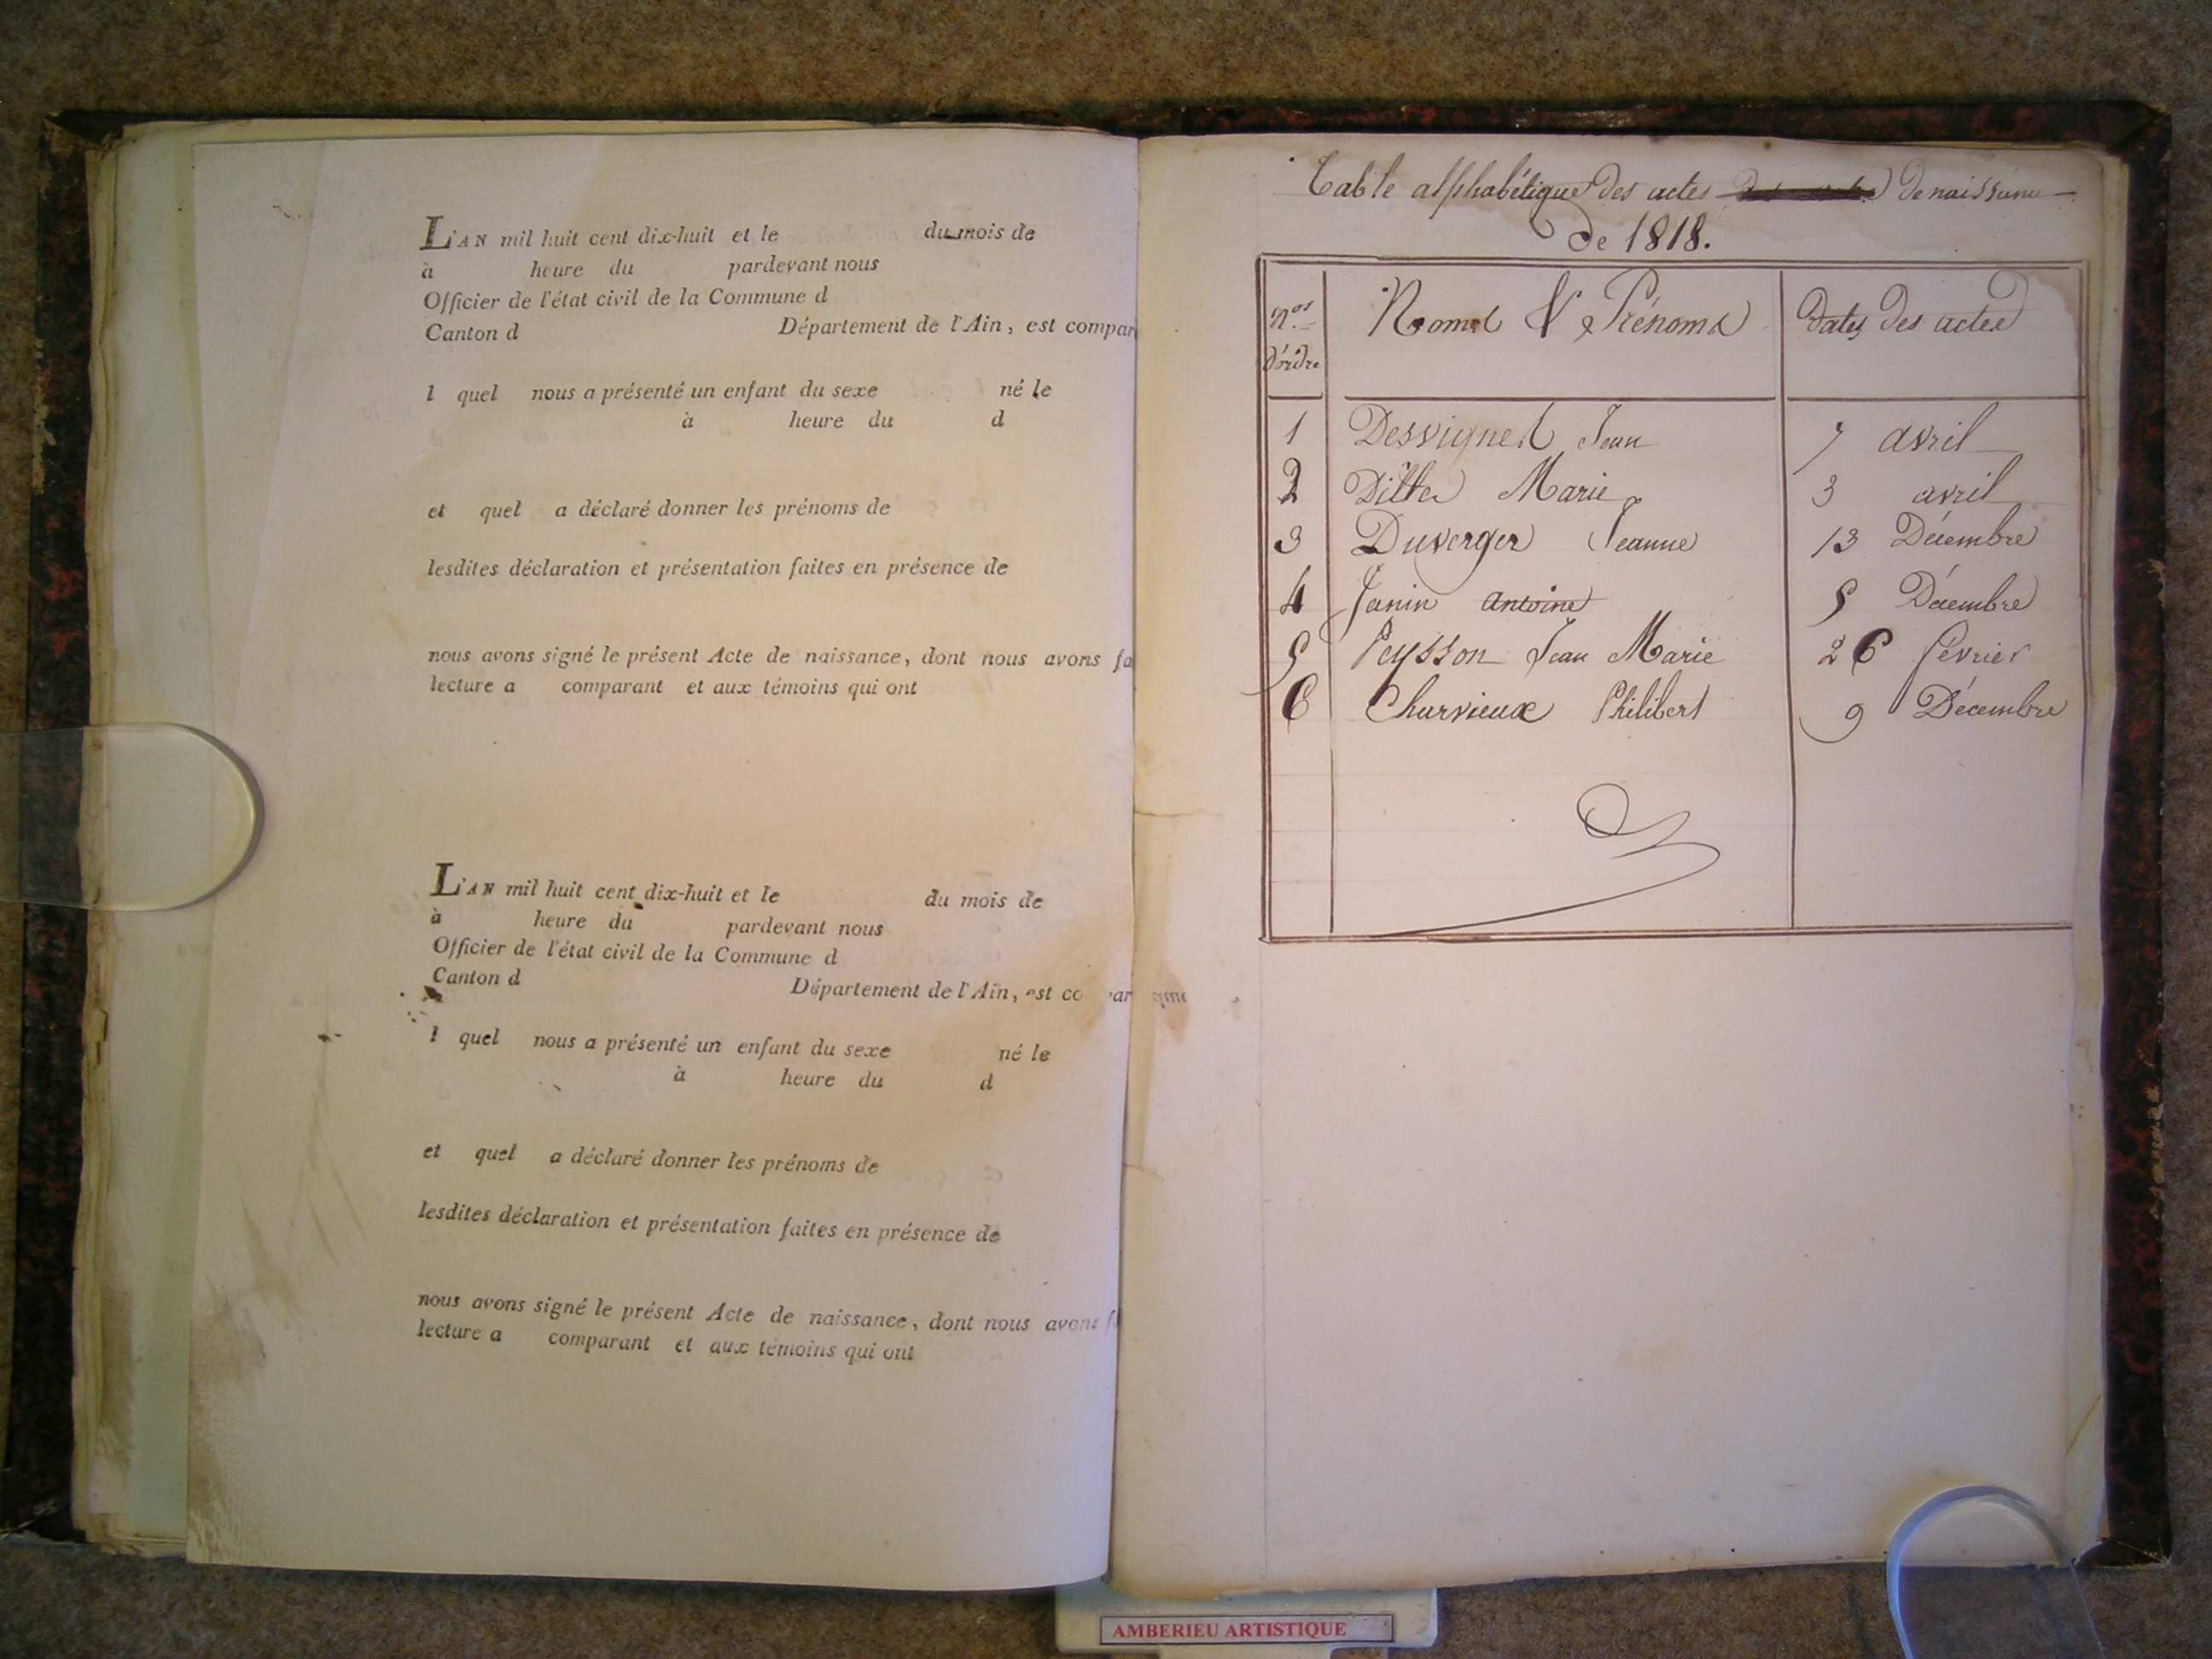 L'AN mil huit cent dix-huit et le du mois de
à heure du pardevant nous
Officier de l'état civil de la Commune d
Canton d Département de l'Ain, est compar
l quel nous a présenté un enfant du sexe né le
à heure du d
et quel a déclaré donner les prénoms de
lesdites déclaration et présentation faites en présence de
nous avons signé le présent Acte de naissance, dont nous avons fa
lecture a comparant et aux témoins qui ont
L'AN mil huit cent dix-huit et le du mois de
à heure du pardevant nous
Officier de l'état civil de la Commune d
Canton d Département de l'Ain, est co par
l quel nous a présenté un enfant du sexe né le
à heure du d
et quel a déclaré donner les prénoms de
lesdites déclaration et présentation faites en présence de
nous avons signé le présent Acte de naissance, dont nous avons f
lecture a comparant et aux témoins qui ont
Table alphabétique des actes de naissance
de 1818.
Nos d'ordre Noms & Prénoms dates des actes
1 Desvignes Jean 7 avril
2 Marie 3 avril
3 Duverger Jeanne 13 Décembre
4 Janin Antoine 5 Décembre
5 Peysson Jean Marie 26 février
6 Charvieux Philibert 9 Décembre
AMBERIEU ARTISTIQUE